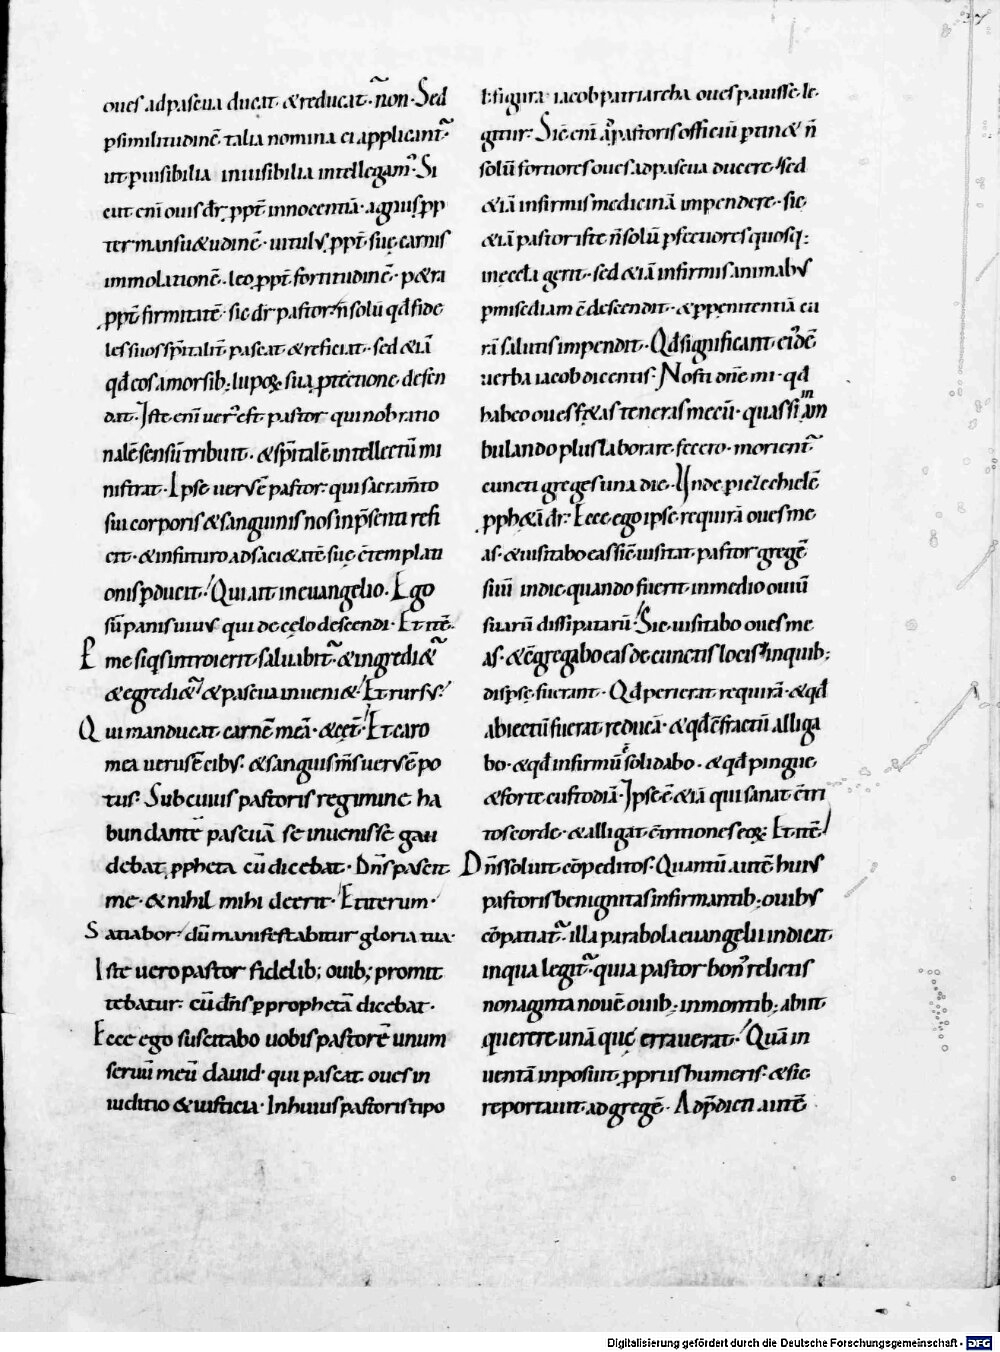 37
oues ad pascua ducat · & reducat · ñon · Sed
p similitudinē · talia nomina ei applicant᷑ ·
ut p uisibilia inuisibilia intellegam᷒ · Si
cut eni ouis dr̄ ppt̄ innocentiā · agnus pp
ter mansu&udinē · uitulus ppt̄ suę carnis
immolationē · leo ppt̄ fortitudinē · p&ra
ppt̄ firmitatē · sic dr̄ pastor · ñ solū qđ fide
les suos sp̄italit̄ pascat & reficiat · sed &iā
qđ eos a morsib; lupoꝝ sua ptectione defen
dat · Iste eni uer᷒ est pastor qui nob ratio
nalē sensū tribuit · & sp̄italē intellectū mi
nistrat · Ipse uerus ē pastor · qui sacram̄to
sui corporis & sanguinis nos in p̄senti refi
cit · & in futuro ad saci&atē suę c̄templati
onis pducit · Qui ait in euangelio · Ego
sū panis uiuus qui de cęlo descendi · Et itē ·
P me siq̄s introierit saluabit᷑ · & ingredi&᷑
& egredi&᷑ · & pascua inueni& · Et rursus ·
Qui manducat carnē meā · & cęt̄ · Et caro
mea uerus ē cibus · & sanguis m̄s uerus ē po
tus · Sub cuius pastoris regimine ha
bundantē pascuā se inuenisse gau
debat ppheta cū dicebat · Dn̄s pascit
me · & nihil mihi deerit · Et iterum ·
Satiabor dū manifestabitur gloria tua ·
Iste uero pastor fidelib; ouib; promit
tebatur · cū dn̄s p prophetā dicebat ·
Ecce ego suscitabo uobis pastorē unum
seruū meū dauid · qui pascat oues in
iuditio & iusticia · In huius pastoris tipo
& figura iacob patriarcha oues pauisse le
gitur · Sic eni ap᷒ pastoris officiū ptin& ñ
solū fortiores oues ad pascua ducere · sed
&iā infirmis medicinā impendere · sic
&iā pastor iste ñ solū pfectiores quosq;
in ęccła gerit · sed &iā infirmis animabus
p misediam ē descendit · & p penitentiā cu
rā salutis impendit · Qđ significant ei᷒dē
uerba iacob dicentis · Nosti dn̄e mi · qđ
habeo oues f&as teneras mecū · quas si in am
bulando plus laborare fecero · morient᷑
cuncti greges una die · Unde p iezechielē
pph&ā dr̄ · Ecce ego ipse requirā oues me
as · & uisitabo eas sic̄ uisitat pastor gregē
suū in die quando fuerit in medio ouiū
suarū dissipatarū · Sic uisitabo oues me
as · & c̄gregabo eas de cunctis locis in quib;
dispse fuerant · Qđ perierat requirā · & qđ
abiectū fuerat reducā · & qđ c̄fractū alliga
bo · & qđ infirmū solidabo · & qđ pingue
& forte custodiā · Ipse ē &iā qui sanat c̄tri
tos corde · & alligat c̄tritiones eoꝝ · Et itē
Dn̄s soluit cōpeditos · Quantū autē huius
pastoris benignitas infirmantib; ouibus
cōpatiat᷑ · illa parabola euangelii indicat ·
in qua legit᷑ · quia pastor bon᷒ relictis
nonaginta nouē ouib; in montib; abiit
querere unā que errauerat · Quā in
uentā inposuit pprius humeris · & sic
reportauit ad gregē · Ad p̄dicti autē
Digitalisierung gefördert durch die Deutsche Forschungsgemeinschaft - DFG